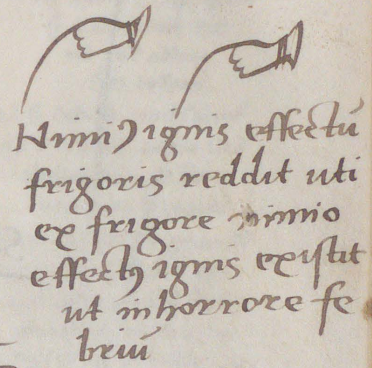 Nimiꝰ ignis effectū
frigoris reddit uti
ex frigore nimio
effectꝰ ignis existit
ut in horrore fe
briū